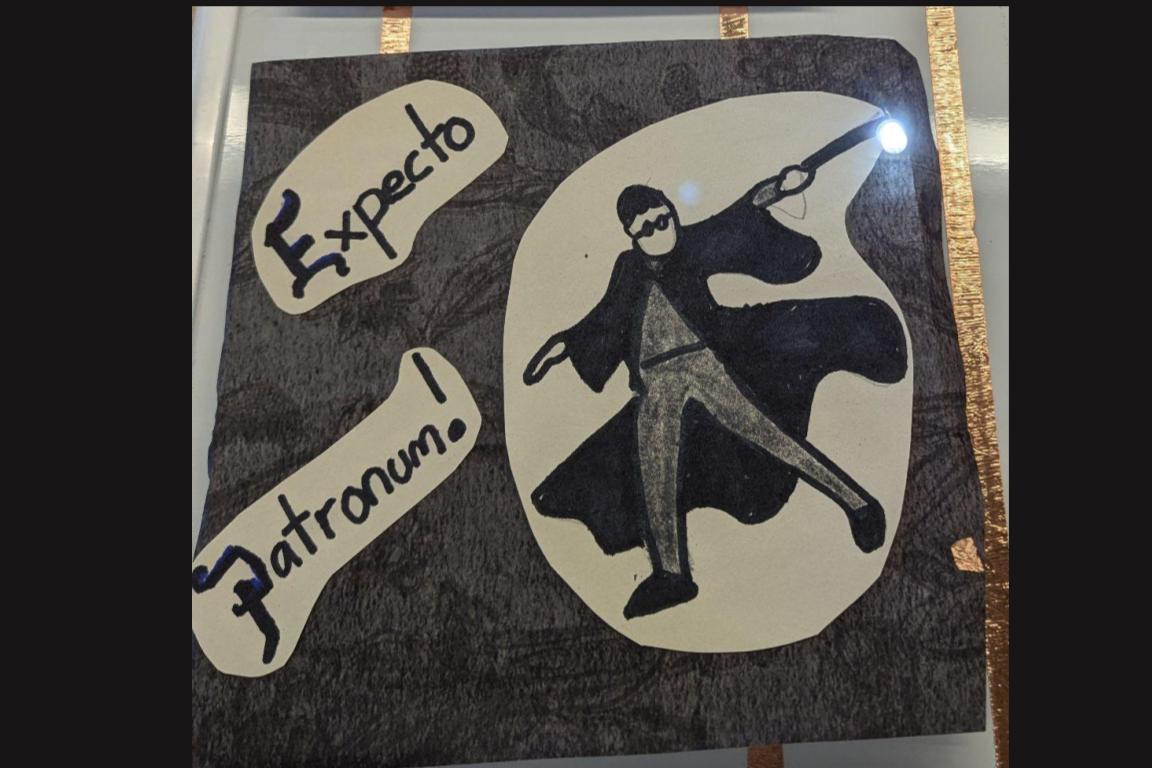 Expecto
Patronum!